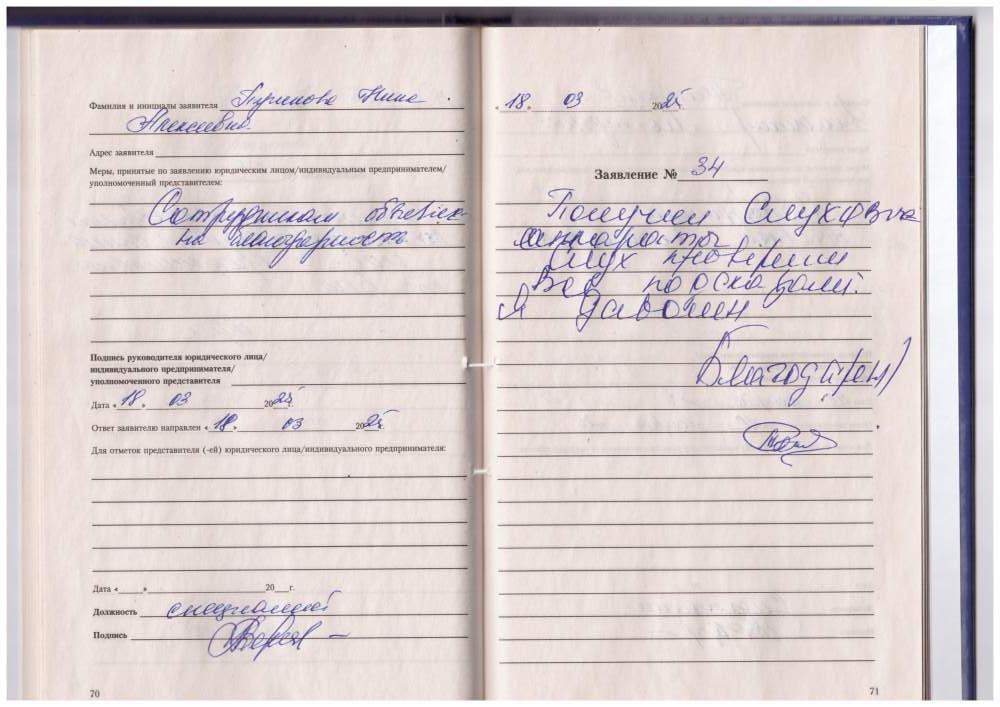 Фамилия и инициалы заявителя Нина
Алексеевна
Адрес заявителя
Меры, принятые по заявлению юридическим лицом/индивидуальным предпринимателем/
уполномоченный представителем:
Сотрудникам объявлена
на благодарность
Подпись руководителя юридического лица/
индивидуального предпринимателя/
уполномоченного представителя
Дата «18» 03 2025г.
Ответ заявителю направлен «18» 03 2025г.
Для отметок представителя (-ей) юридического лица/индивидуального предпринимателя:
Дата « » 20 г.
Должность специалист
Подпись
70
«18» 03 2025
Заявление № 34
Получил Слуховые
аппараты
Слух проверили
Все порсказали.
Я Даволен
Благод(рен)
71